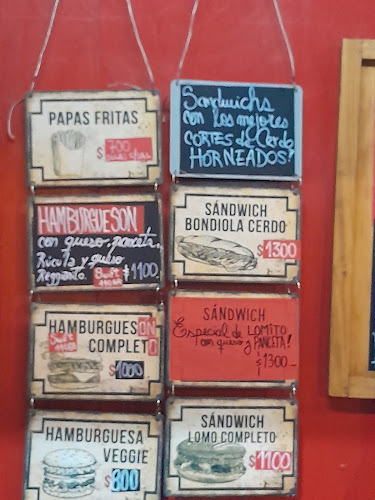 PAPAS FRITAS
$ 700
HAMBURGUESON
con queso, panceta,
Rucula y queso
Reggianito. Swift $1100.
HAMBURGUESON
COMPLETO
Swift
$1000
HAMBURGUESA
VEGGIE
$800
Sandwichs
con los mejores
CORTES de Cerdo
HORNEADOS!
SÁNDWICH
BONDIOLA CERDO
$1300
SÁNDWICH
Especial de LOMITO
con queso y PANCETA!
$1300-
SÁNDWICH
LOMO COMPLETO
$1100